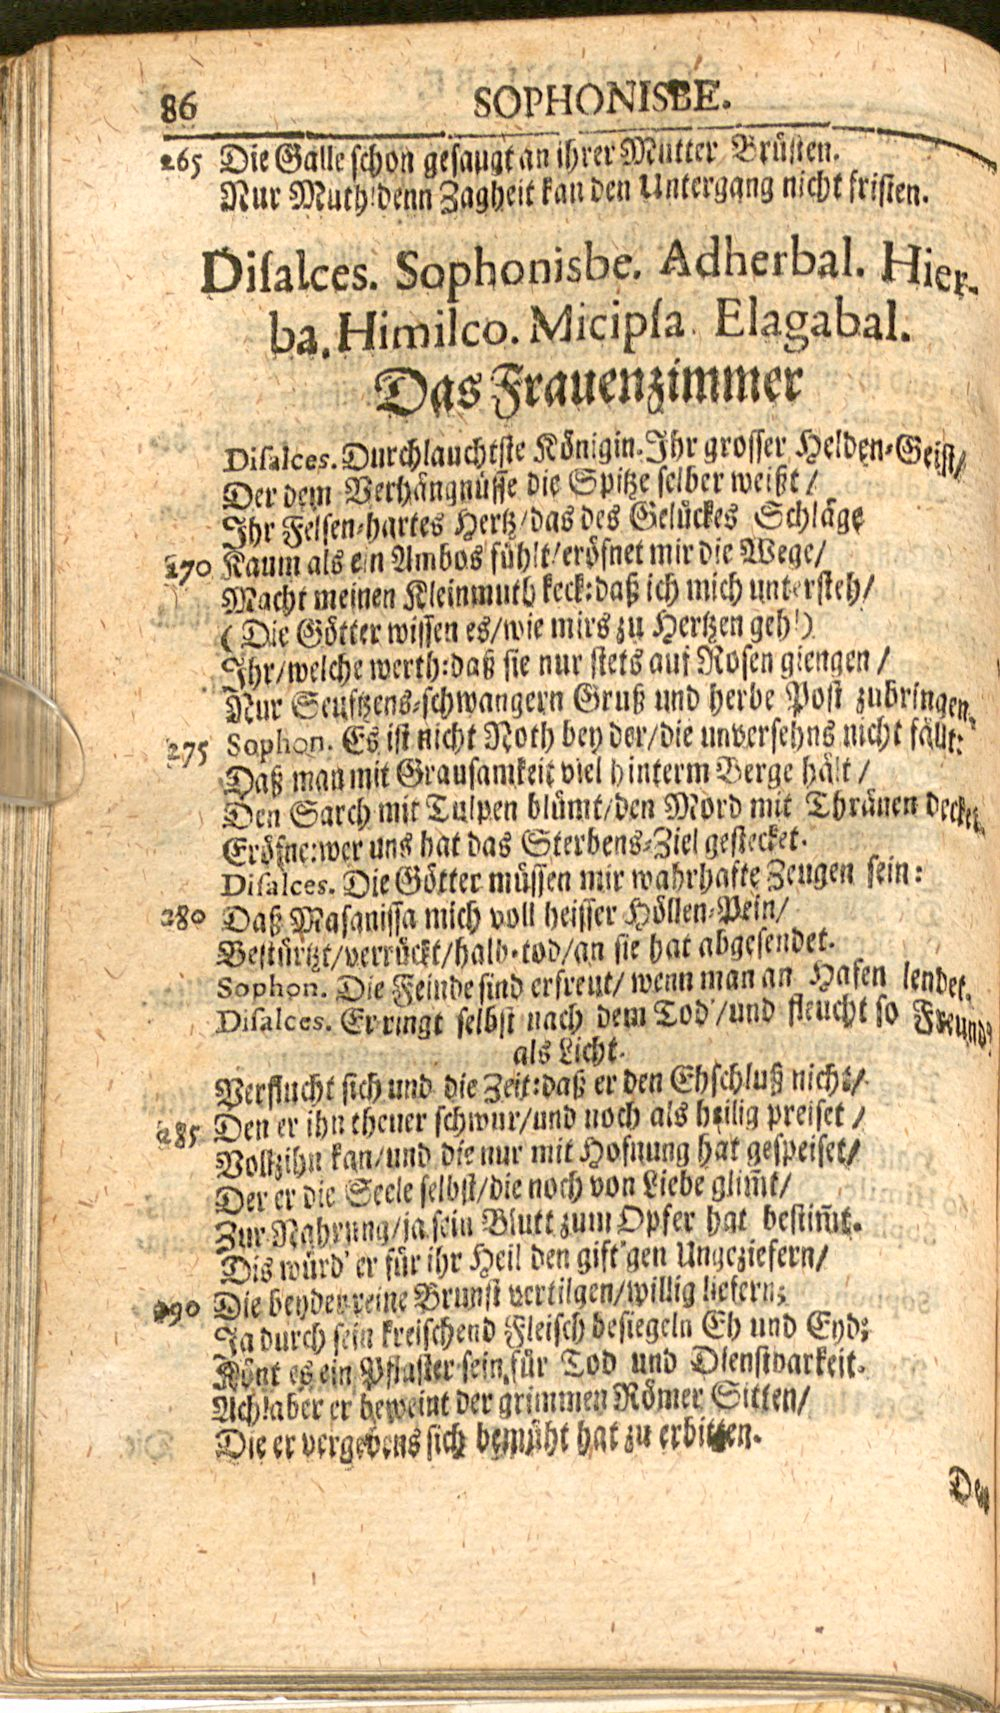 86 SOPHONISBE.
265 Die Galle schon gesaugt an ihrer Mutter Brüsten.
Nur Muth! denn Zagheit kan den Untergang nicht fristen.
Disalces. Sophonisbe. Adherbal. Hier-
ba. Himilco. Micipsa. Elagabal.
Das Frauenzimmer
Disalces. Durchlauchtste Königin. Ihr grosser Helden-Geist/
Der dem Verhängnüsse die Spitze selber weißt/
Ihr Felsen-hartes Hertz/das des Gelückes Schläge
270 Kaum als ein Ambos fühlt/eröfnet mir die Wege/
Macht meinen Kleinmuth keck: daß ich mich untersteh/
(Die Götter wissen es/wie mirs zu Hertzen geh!)
Ihr/welche werth: daß sie nur stets auf Rosen giengen/
Nur Seuftzens-schwangern Gruß und herbe Post zubringen.
275 Sophon. Es ist nicht Noth bey der/die unversehns nicht fällt:
Daß man mit Grausamkeit viel hinterm Berge hält/
Den Sarch mit Tulpen blümt/den Mord mit Thränen decket.
Eröfne: wer uns hat das Sterbens-Ziel gestecket.
Disalces. Die Götter müssen mir wahrhafte Zeugen sein:
280 Daß Masanissa mich voll heisser Höllen-Pein/
Bestürtzt/verrückt/halb-tod/an sie hat abgesendet.
Sophon. Die Feinde sind erfreut/ wenn man an Hafen lendet.
Disalces. Er ringt selbst nach dem Tod'/und fleucht so Freund'
als Licht.
Verflucht sich und die Zeit: daß er den Ehschluß nicht/
285 Den er ihn theuer schwur/und noch als heilig preiset/
Vollzihn kan/und die nur mit Hofnung hat gespeiset/
Der er die Seele selbst/die noch von Liebe glim̃t/
Zur Nahrung/ja sein Blutt zum Opfer hat bestim̃t.
Dis würd' er für ihr Heil den gift'gen Ungeziefern/
290 Die beyder reine Brunst vertilgen/willig liefern;
Ja durch sein kreischend Fleisch besiegeln Eh und Eyd;
Könt es ein Pflaster sein für Tod und Dienstbarkeit.
Ach! aber er beweint der grimmen Römer Sitten/
Die er vergebens sich bemüht hat zu erbitten.
Den